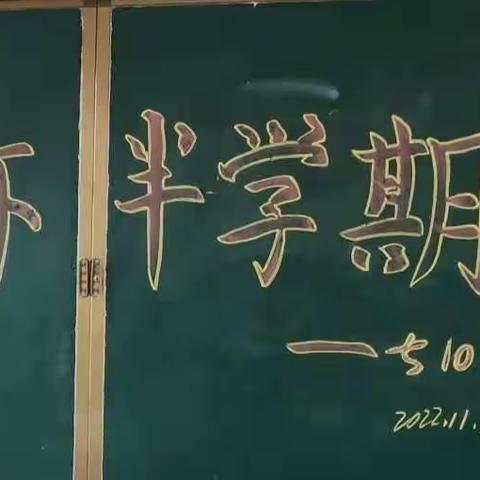 半学期
—七10
2022.11.